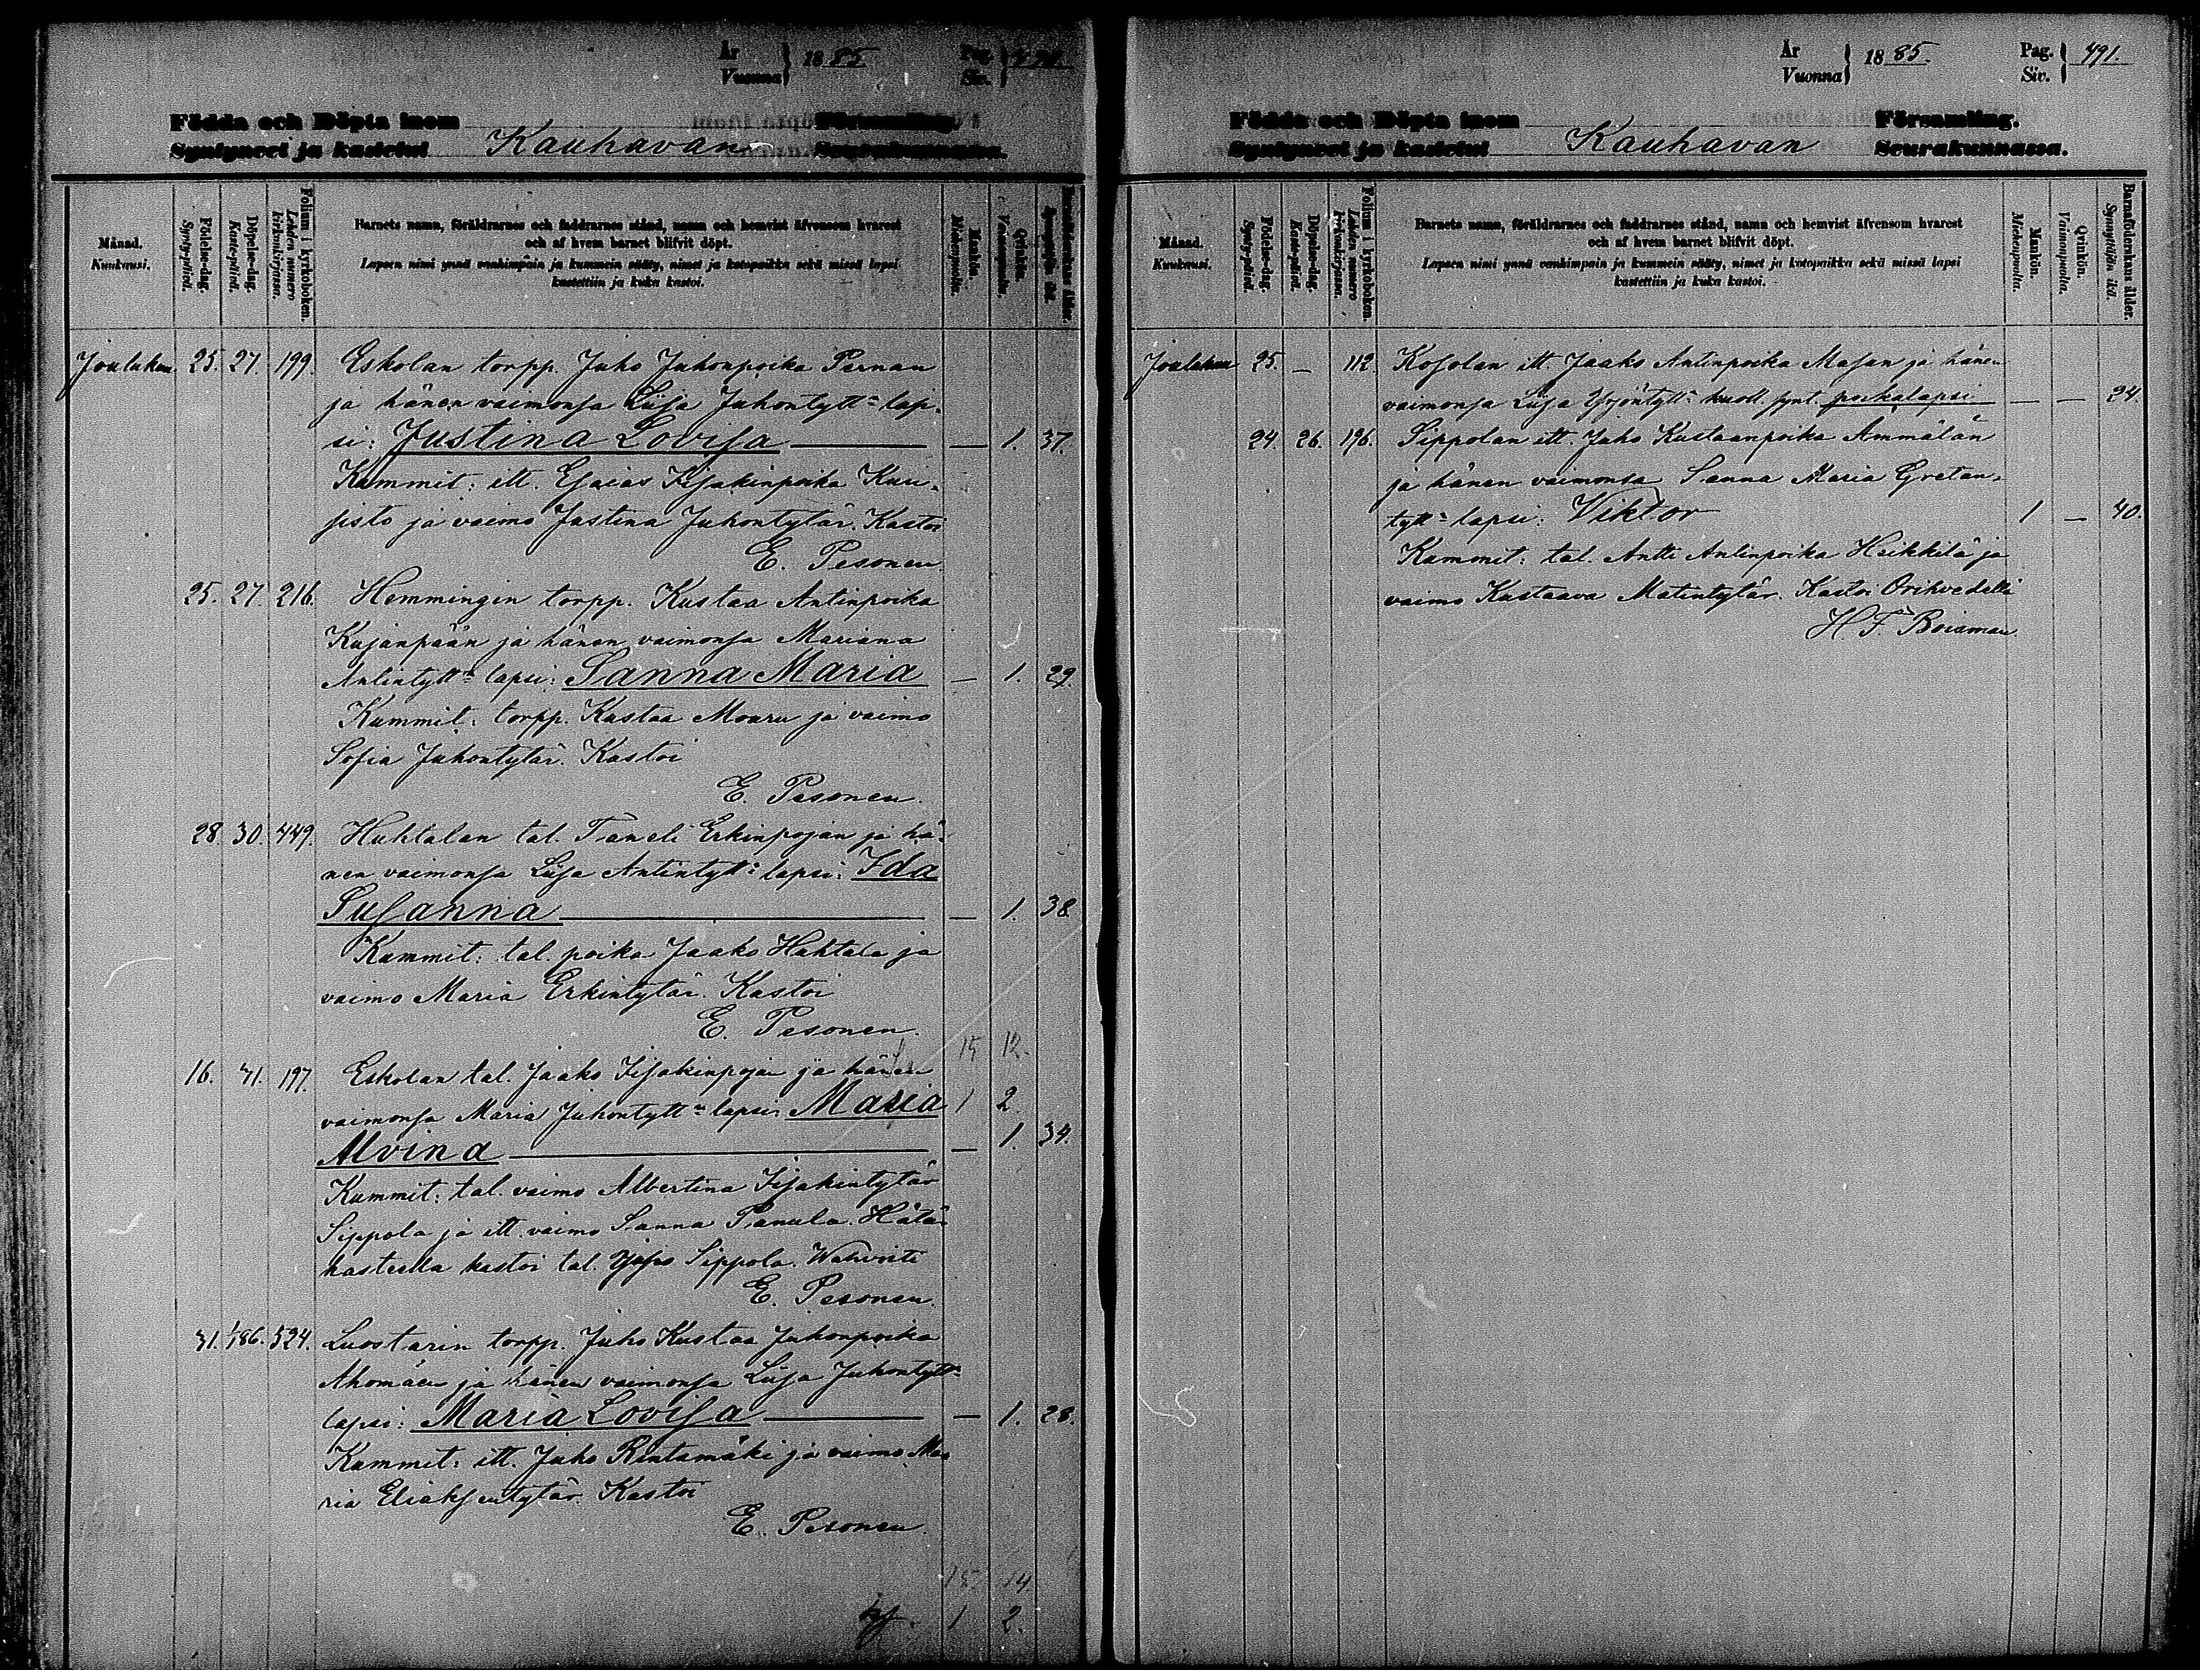 År
Vuonna } 1885.
Pag.
Siv. }
Födda och Döpta inom
Syntyneet ja kastetut Kauhavan Församling.
Seurakunnassa.
Månad.
Kuukausi.
Födelse-dag.
Syntymä-päivä.
Döpelse-dag.
Kaste-päivä.
Folium i kyrkoboken.
Lehden numero kirkonkirjassa.
Barnets namn, föräldrarnes och faddrarnes stånd, namn och hemvist äfvensom hvarest
och af hvem barnet blifvit döpt.
Lapsen nimi ynnä vanhimpain ja kummein sääty, nimet ja kotopaikka sekä missä lapsi
kastettiin ja kuka kastoi.
Mankön.
Miehenpuolia.
Qvinkön.
Vaimonpuolia.
Barnaföderskans ålder.
Synnyttäjän ikä.
Joulukuu 25. 27. 199. Eskolan torpp. Juho Juhonpoika Pernan
ja hänen vaimonsa Liisa Juhontytt:n lap-
si: Justina Lovisa — — 1. 37.
Kummit: itl. Esaias Iisakinpoika Kuu-
sisto ja vaimo Justina Juhontytär. Kastoi
E. Pesonen
25. 27. 216. Hemmingin torpp. Kustaa Antinpoika
Kujanpään ja hänen vaimonsa Mariana
Antintytt:n lapsi: Sanna Maria — 1. 29.
Kummit: torpp. Kustaa Mouru ja vaimo
Sofia Juhontytär. Kastoi
E. Pesonen.
28. 30. 449. Huhtalan tal. Taneli Erkinpojan ja hä-
nen vaimonsa Liisa Antintytt:n lapsi: Ida
Susanna — — 1. 38.
Kummit: tal. poika Jaako Huhtala ja
vaimo Maria Erkintytär. Kastoi
E. Pesonen.
15 12.
16. 31. 197. Eskolan tal. Jaako Iisakinpojan ja hänen
vaimonsa Maria Juhontytt:n lapsi: Maria 1 2.
Alvina — — 1. 34.
Kummit: tal. vaimo Albertina Iisakintytär
Sippola ja itl. vaimo Sanna Panula. Hätä-
kasteella kastoi tal. Sippola. Wahvisti
E. Pesonen.
31. 1/1 86. 524. Luostarin torpp. Juho Kustaa Juhonpoika
Ahomäen ja hänen vaimonsa Liisa Juhontytt:n
lapsi: Maria Lovisa — — 1. 28.
Kummit: itl. Juho Rintamäki ja vaimo Ma-
ria Eliaksentytär. Kastoi
E. Pesonen.
15. 14
1 2.
År
Vuonna } 1885.
Pag.
Siv. } 491.
Födda och Döpta inom
Syntyneet ja kastetut Kauhavan Församling.
Seurakunnassa.
Månad.
Kuukausi.
Födelse-dag.
Syntymä-päivä.
Döpelse-dag.
Kaste-päivä.
Folium i kyrkoboken.
Lehden numero kirkonkirjassa.
Barnets namn, föräldrarnes och faddrarnes stånd, namn och hemvist äfvensom hvarest
och af hvem barnet blifvit döpt.
Lapsen nimi ynnä vanhimpain ja kummein sääty, nimet ja kotopaikka sekä missä lapsi
kastettiin ja kuka kastoi.
Mankön.
Miehenpuolia.
Qvinkön.
Vaimonpuolia.
Barnaföderskans ålder.
Synnyttäjän ikä.
Joulukuu 25. — 112. Kosolan itl. Jaako Antinpoika Masan ja hänen
vaimonsa Liisa Yrjöntytt:n kuoll. synt. poikalapsi — — 24.
24. 26. 196. Sippolan itl. Juho Kustaanpoika Ammälän
ja hänen vaimonsa Sanna Maria Gretan-
tytt:n lapsi: Viktor 1 — 40.
Kummit: tal. Antti Antinpoika Heikkilä ja
vaimo Kustaava Matintytär. Kastoi Orihvedellä
H. F. Boisman